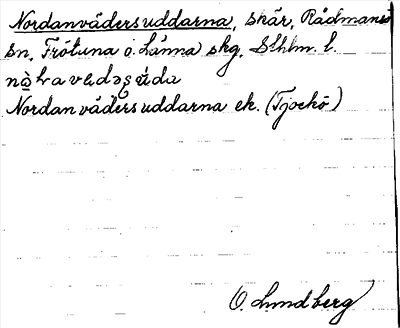 Nordanvädersuddarna, skär, Rådmansö
sn, Frötuna o. Länna skg, Sthlm. l.
Nordanvädersuddarna ek. (Tjockö)
O. Lundberg